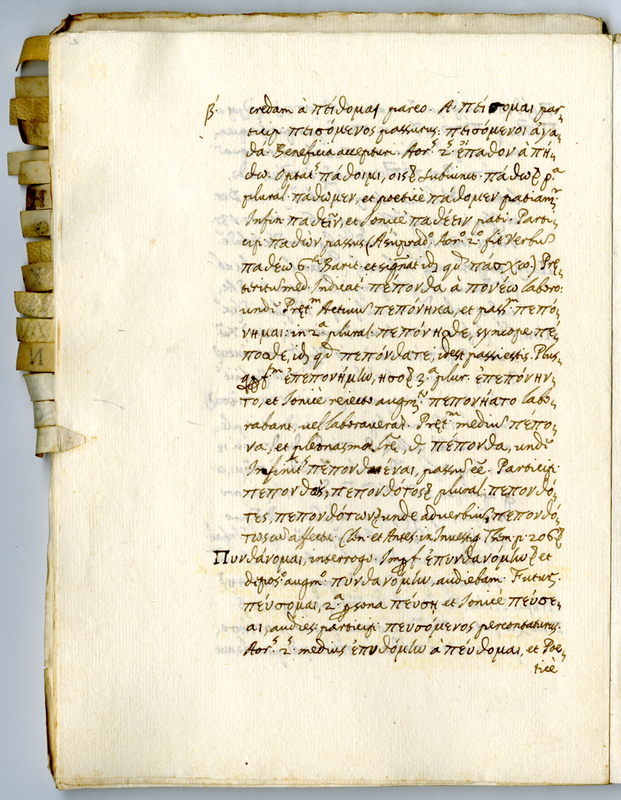 β. credam à πείθομαι pareo. A πείσομαι par-
ticip. πεισόμενος passurus: πεισόμενοι ἀγα-
θά. Beneficia accepturi. Aor.s 2.s ἔπαθον à πή-
θω. Optat. πάθοιμι, οις Subiunct. πάθω
plural πάθωμεν, et poeticè πάθομεν patiamr
Infin. παθεῖν, et Ionicè παθέειν pati. Parti-
cip. παθὼν passus (Ab Aor.o 2.o fit verbũ
παθέω 6.ae Barit. et signat id qd πάσχω) Prę-
teritũ med. Indicat. πέπονθα à πονέω laboro:
undè Pręt.m Activũ πεπόνηκα, et pass.m πεπό-
νημαι: in 2.a plural. πεπόνησθε, syncope πέ-
ποσθε, id qd πεπόνθατε, idest passi estis. Plus-
ἐπεπονήμην, ησο 3.a plur. ἐπεπόνην-
το, et Ionicè reiecto augm. πεπονήατο labo-
rabant, vel laboraverat. Pręt.m mediũ πέπο-
να, et pleonasmo θ, πέπονθα, undè
Infinit. πεπονθέναι, passũ ee. Particip.
πεπονθὼς, πεπονθότος plural. πεπονθό-
τες, πεπονθότων unde adverbiũ πεπονθό-
τως affecte. et Antes. in Investig. p. 206
Πυνθάνομαι, interrogo. Impf. ἐπυνθανόμην et
augm. πυνθανόμην, audiebam. Futur.
πεύσομαι, 2.a psona πεύση et Ionicè πεύσε-
αι, audies: particip. πευσόμενος percontaturus.
Aor.s 2.s medius ἐπυθόμην à πεύθομαι, et Poe-
ticè